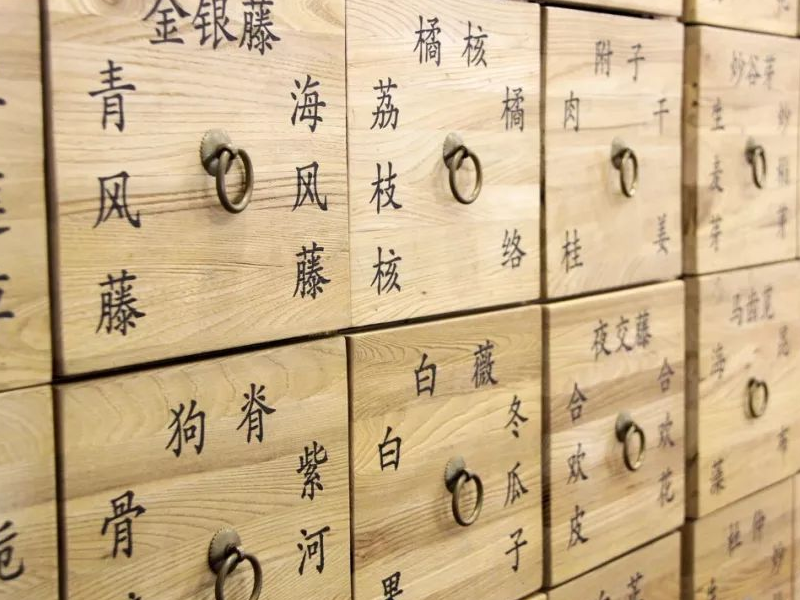 金银藤
青风藤
海风藤
橘核
荔枝核
橘络
附子
肉桂
干姜
炒谷芽
生麦芽
狗脊
骨
紫河
白薇
白
冬瓜子
夜交藤
合欢皮
合欢花
马齿苋
海藻
昆布
杜仲